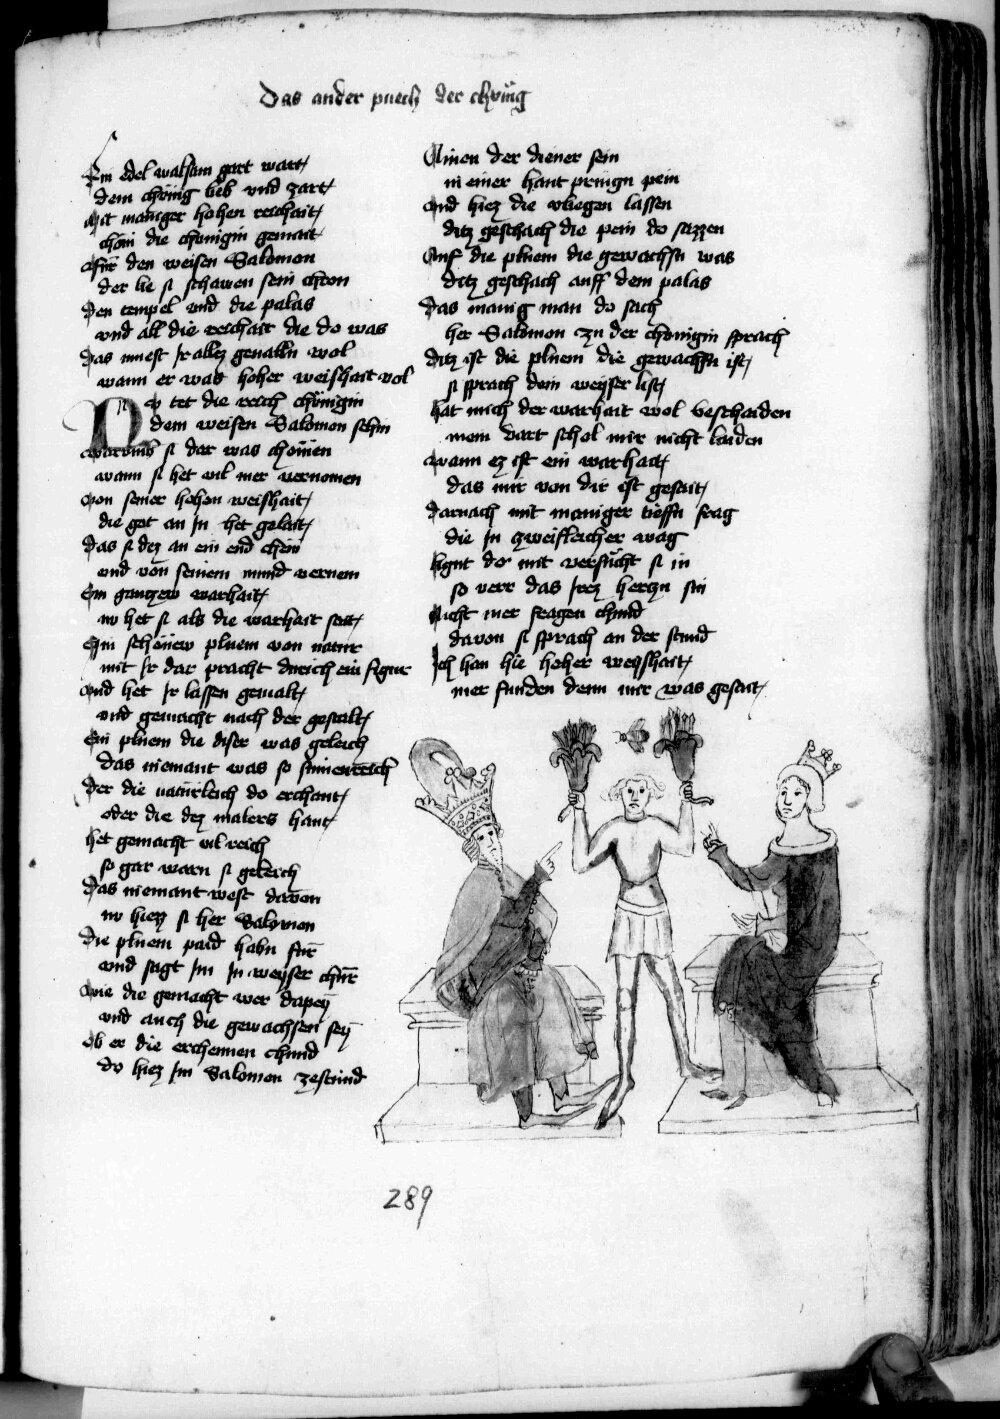 Das ander puech der chünig
Ein edel walsam gart wart
dem chünig lieb und zart
Mit maniger hohen reichait
chom die chonigin gemait
Für den weisen Salomon
der lie si schawen sein chron
Den tempel und die palas
und all die reichait die do was
Das muest ir allez geualln wol
wann er was hoher weishait vol
Nu tet die reich chünigin
dem weisen Salomon schin
Warumb si dar was chomen
wann si het vil mer vernomen
Von seiner hohen weishait
die got an in het geleit
Das si dez an ein end chem
und von seinem mund vernem
Ein gantzew warhait
nu het si als die warhait seit
Ein schönew pluem von natur
mit ir dar pracht durich ein figur
Und het ir lassen gemalt
und gemacht nach der gestalt
Ein pluem die diser was geleich
das niemant was so sinnenreich
Der die naturleich do erchant
oder die dez malers hant
Het gemacht vil reich
so gar warn si geleich
Das niemant west davon
nu hiez si her Salomon
Die pluem paid habn für
und sagt im in weyser chür
Wie die gemacht wer dapey
und auch die gewachsen sey
Ob er die erchennen chund
do hiez im Salomon zestund
Ainen der diener sein
in einer hant pringn pein
Und hiez die vliegen lassen
ditz geschach die pein do sazzen
Auf die pluem die gewachsn was
ditz geschach auff dem palas
Das manig man do sach
her Salomon zu der chonigin sprach
Ditz ist die pluem die gewachsn ist
si sprach dein weyser list
Hat mich der warhait wol beschaiden
mein vart schol mir nicht laiden
Wann ez ist ein warhait
das mir von dir ist gesait
Darnach mit maniger tieffn frag
die in zweifleicher wag
Lignt do mit versucht si in
so verr das irez hertzn sin
Nicht mer fragen chund
davon si sprach an der stund
Ich han hie hoher weyshait
mer funden denn mir was gesait
289